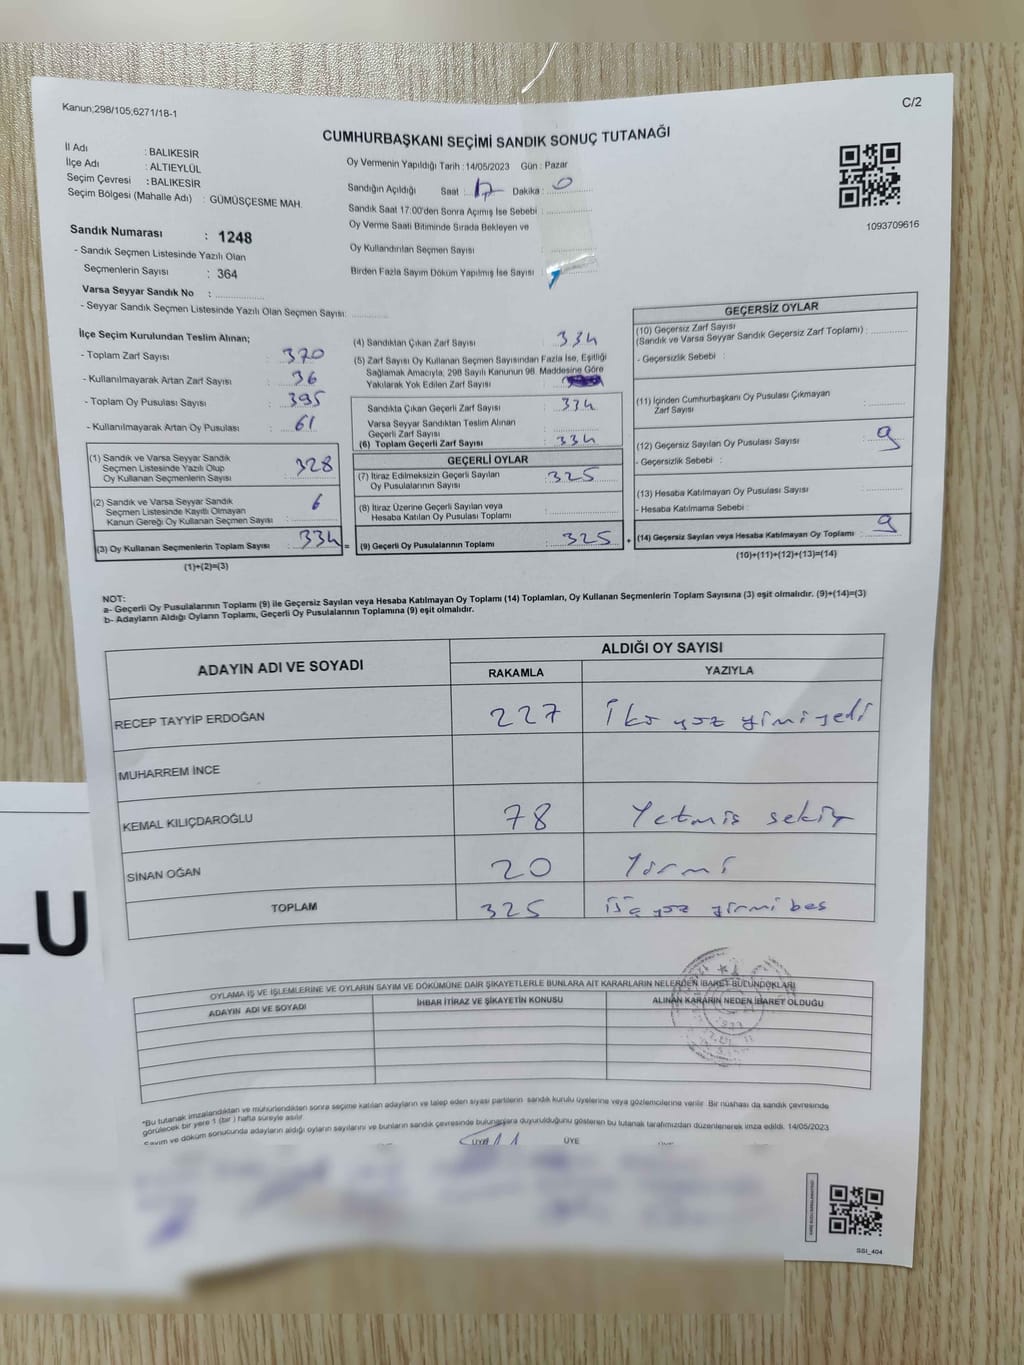 Kanun;298/105;6271/18-1
C/2
CUMHURBAŞKANI SEÇİMİ SANDIK SONUÇ TUTANAĞI
İl Adı : BALIKESİR
İlçe Adı : ALTIEYLÜL
Seçim Çevresi : BALIKESİR
Seçim Bölgesi (Mahalle Adı) : GÜMÜŞÇEŞME MAH.
Oy Vermenin Yapıldığı Tarih : 14/05/2023 Gün : Pazar
Sandığın Açıldığı Saat : 17 Dakika : 0
Sandık Saat 17:00'den Sonra Açımış İse Sebebi :
Oy Verme Saati Bitiminde Sırada Bekleyen ve
Oy Kullandırılan Seçmen Sayısı
Birden Fazla Sayım Döküm Yapılmış İse Sayısı
1093709616
Sandık Numarası : 1248
- Sandık Seçmen Listesinde Yazılı Olan
Seçmenlerin Sayısı : 364
Varsa Seyyar Sandık No :
- Seyyar Sandık Seçmen Listesinde Yazılı Olan Seçmen Sayısı:
İlçe Seçim Kurulundan Teslim Alınan;
- Toplam Zarf Sayısı : 370
- Kullanılmayarak Artan Zarf Sayısı : 36
- Toplam Oy Pusulası Sayısı : 395
- Kullanılmayarak Artan Oy Pusulası : 61
(1) Sandık ve Varsa Seyyar Sandık
Seçmen Listesinde Yazılı Olup
Oy Kullanan Seçmenlerin Sayısı : 328
(2) Sandık ve Varsa Seyyar Sandık
Seçmen Listesinde Kayıtlı Olmayan
Kanun Gereği Oy Kullanan Seçmen Sayısı : 6
(3) Oy Kullanan Seçmenlerin Toplam Sayısı : 334 =
(1)+(2)=(3)
(4) Sandıktan Çıkan Zarf Sayısı : 334
(5) Zarf Sayısı Oy Kullanan Seçmen Sayısından Fazla İse, Eşitliği
Sağlamak Amacıyla, 298 Sayılı Kanunun 98. Maddesine Göre
Yakılarak Yok Edilen Zarf Sayısı
Sandıkta Çıkan Geçerli Zarf Sayısı : 334
Varsa Seyyar Sandıktan Teslim Alınan
Geçerli Zarf Sayısı :
(6) Toplam Geçerli Zarf Sayısı : 334
GEÇERLİ OYLAR
(7) İtiraz Edilmeksizin Geçerli Sayılan
Oy Pusulalarının Sayısı : 325
(8) İtiraz Üzerine Geçerli Sayılan veya
Hesaba Katılan Oy Pusulası Toplamı :
(9) Geçerli Oy Pusulalarının Toplamı : 325 +
GEÇERSİZ OYLAR
(10) Geçersiz Zarf Sayısı
(Sandık ve Varsa Seyyar Sandık Geçersiz Zarf Toplamı) :
- Geçersizlik Sebebi :
(11) İçinden Cumhurbaşkanı Oy Pusulası Çıkmayan
Zarf Sayısı :
(12) Geçersiz Sayılan Oy Pusulası Sayısı : 9
- Geçersizlik Sebebi :
(13) Hesaba Katılmayan Oy Pusulası Sayısı :
- Hesaba Katılmama Sebebi :
(14) Geçersiz Sayılan veya Hesaba Katılmayan Oy Toplamı : 9
(10)+(11)+(12)+(13)=(14)
NOT:
a- Geçerli Oy Pusulalarının Toplamı (9) ile Geçersiz Sayılan veya Hesaba Katılmayan Oy Toplamı (14) Toplamları, Oy Kullanan Seçmenlerin Toplam Sayısına (3) eşit olmalıdır. (9)+(14)=(3)
b- Adayların Aldığı Oyların Toplamı, Geçerli Oy Pusulalarının Toplamına (9) eşit olmalıdır.
ADAYIN ADI VE SOYADI
ALDIĞI OY SAYISI
RAKAMLA YAZIYLA
RECEP TAYYİP ERDOĞAN 227 İki yüz yirmi yedi
MUHARREM İNCE
KEMAL KILIÇDAROĞLU 78 Yetmiş sekiz
SİNAN OĞAN 20 Yirmi
TOPLAM 325 üç yüz yirmi beş
LU
OYLAMA İŞ VE İŞLEMLERİNE VE OYLARIN SAYIM VE DÖKÜMÜNE DAİR ŞİKAYETLERLE BUNLARA AİT KARARLARIN NELERDEN İBARET BULUNDUKLARI
ADAYIN ADI VE SOYADI İHBAR İTİRAZ VE ŞİKAYETİN KONUSU ALINAN KARARIN NEDEN İBARET OLDUĞU
*Bu tutanak imzalandıktan ve mühürlendikten sonra seçime katılan adayların ve talep eden siyasi partilerin sandık kurulu üyelerine veya gözlemcilerine verilir. Bir nüshası da sandık çevresinde
görülecek bir yere 1 (bir) hafta süreyle asılır.
Sayım ve döküm sonucunda adayların aldığı oyların sayılarını ve bunların sandık çevresinde bulunanlara duyurulduğunu gösteren bu tutanak tarafımızdan düzenlenerek imza edildi. 14/05/2023
ÜYE ÜYE
SSI_404